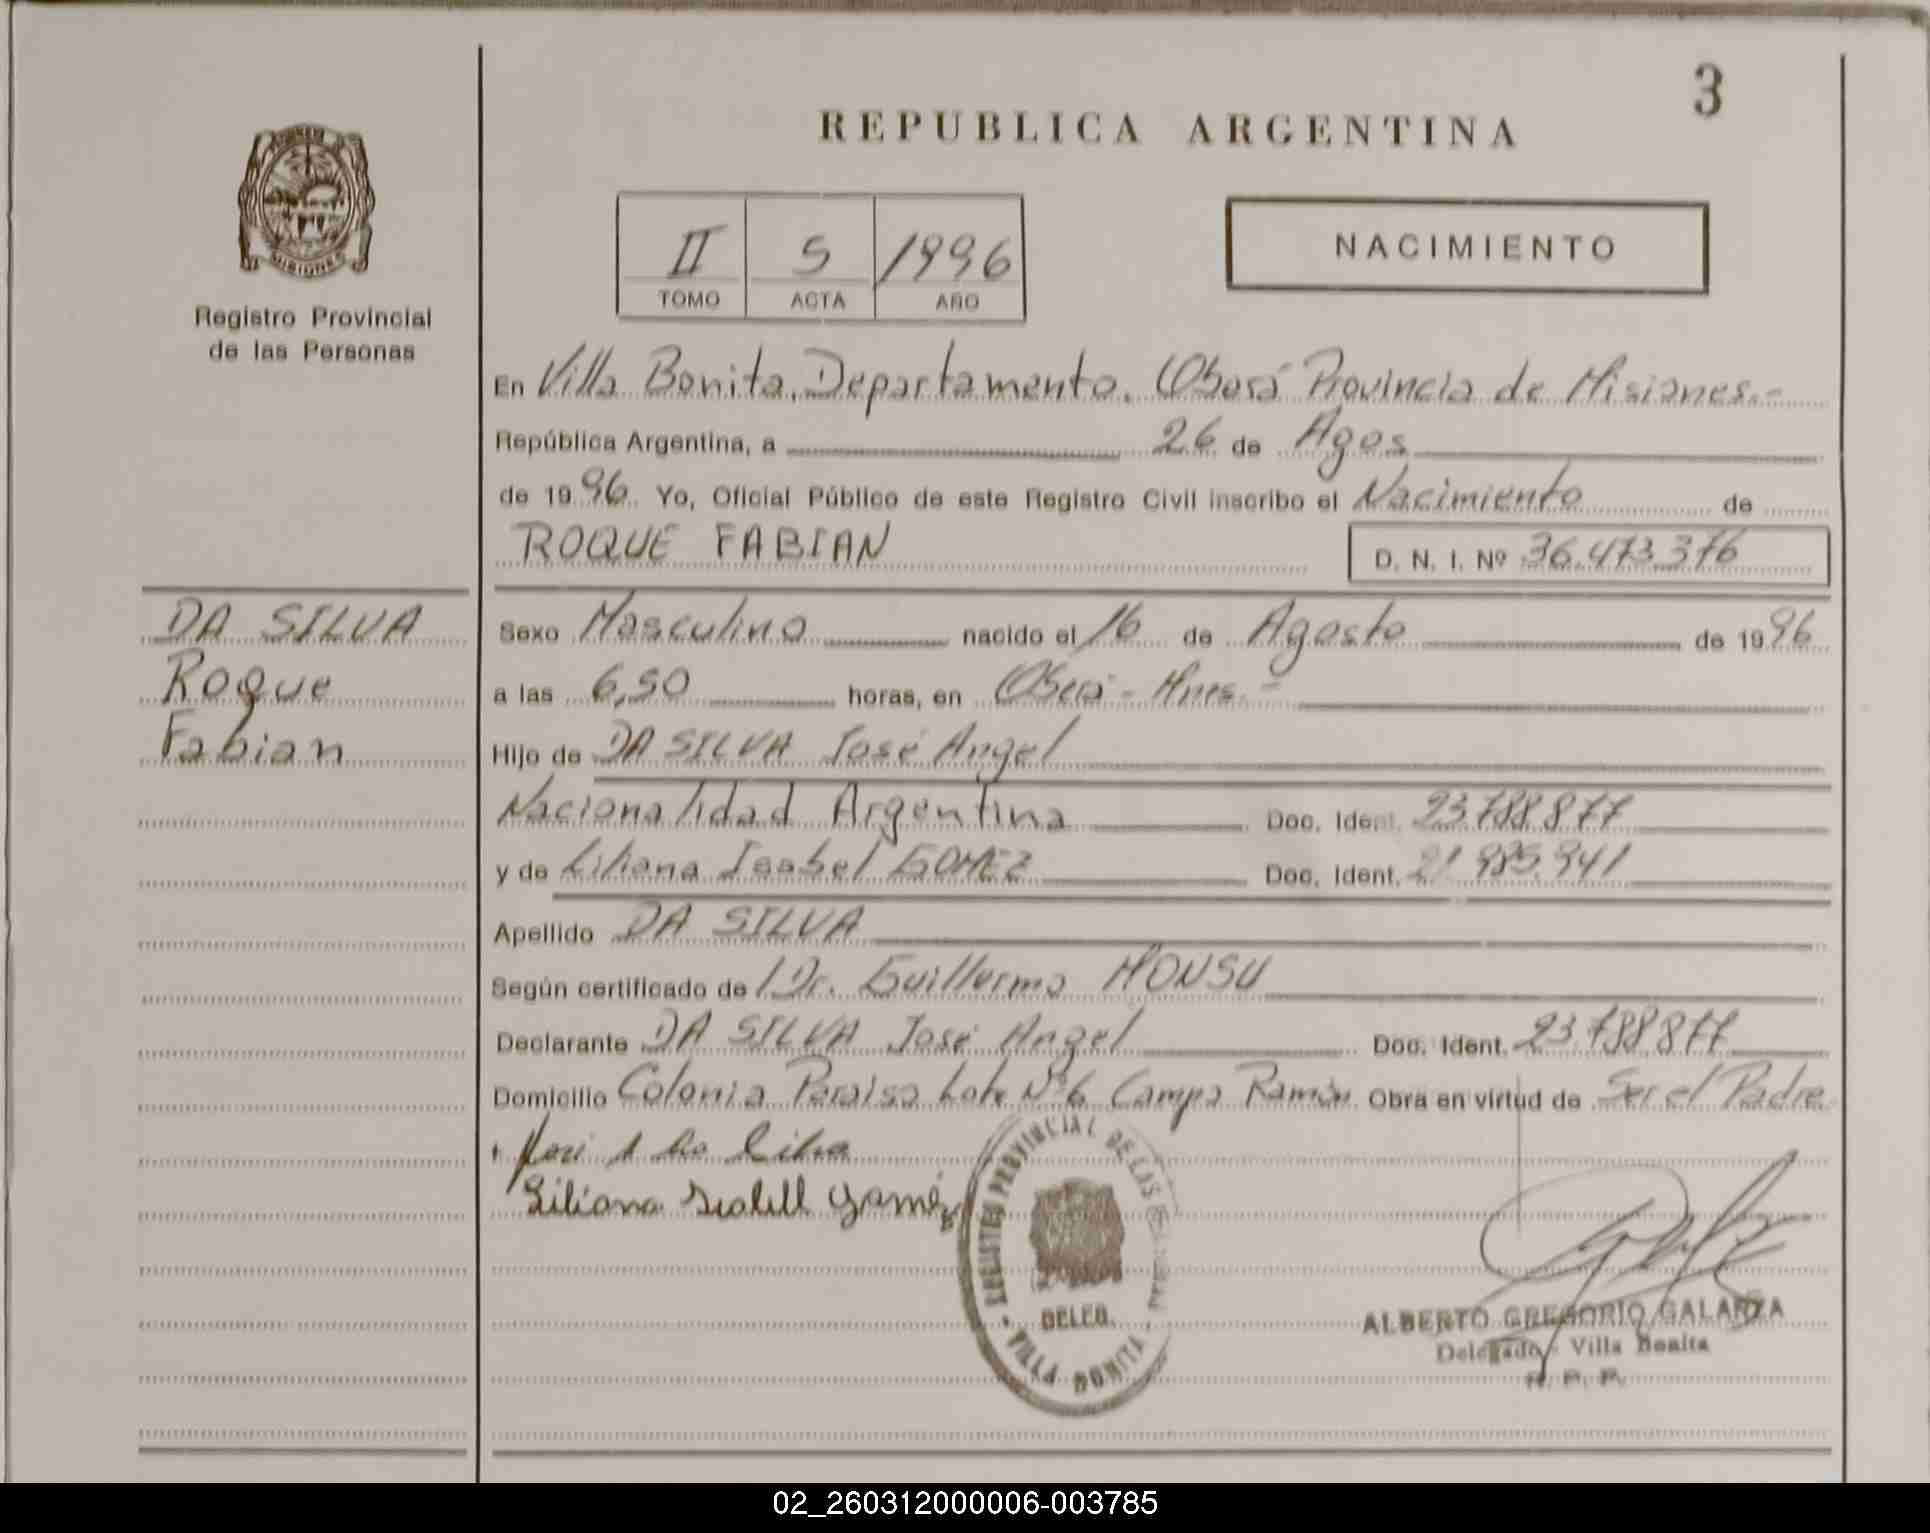 3
REPUBLICA ARGENTINA
II 5 1996
TOMO ACTA AÑO
NACIMIENTO
MISIONES
Registro Provincial
de las Personas
En Villa Bonita, Departamento. Oberá Provincia de Misiones.-
República Argentina, a 26 de Agos
de 1996 Yo, Oficial Público de este Registro Civil inscribo el Nacimiento de
ROQUE FABIAN D. N. I. Nº 36.473.376
DA SILVA
Roque
Fabian
Sexo Masculino nacido el 16 de Agosto de 1996
a las 6,50 horas, en Oberá - Mnes.-
Hijo de DA SILVA José Angel
Nacionalidad Argentina Doc. Ident. 23.788.877
y de Liliana Isabel GOMEZ Doc. Ident. 21.985.941
Apellido DA SILVA
Según certificado de Dr. Guillermo MONSU
Declarante DA SILVA José Angel Doc. Ident. 23.788.877
Domicilio Colonia Paraiso Lote Nº6 Campo Ramón Obra en virtud de Ser el Padre
REGISTRO PROVINCIAL DE LAS PERSONAS
DELEG.
VILLA BONITA
ALBERTO GREGORIO GALARZA
Delegado - Villa Bonita
R. P. P.
02_260312000006-003785